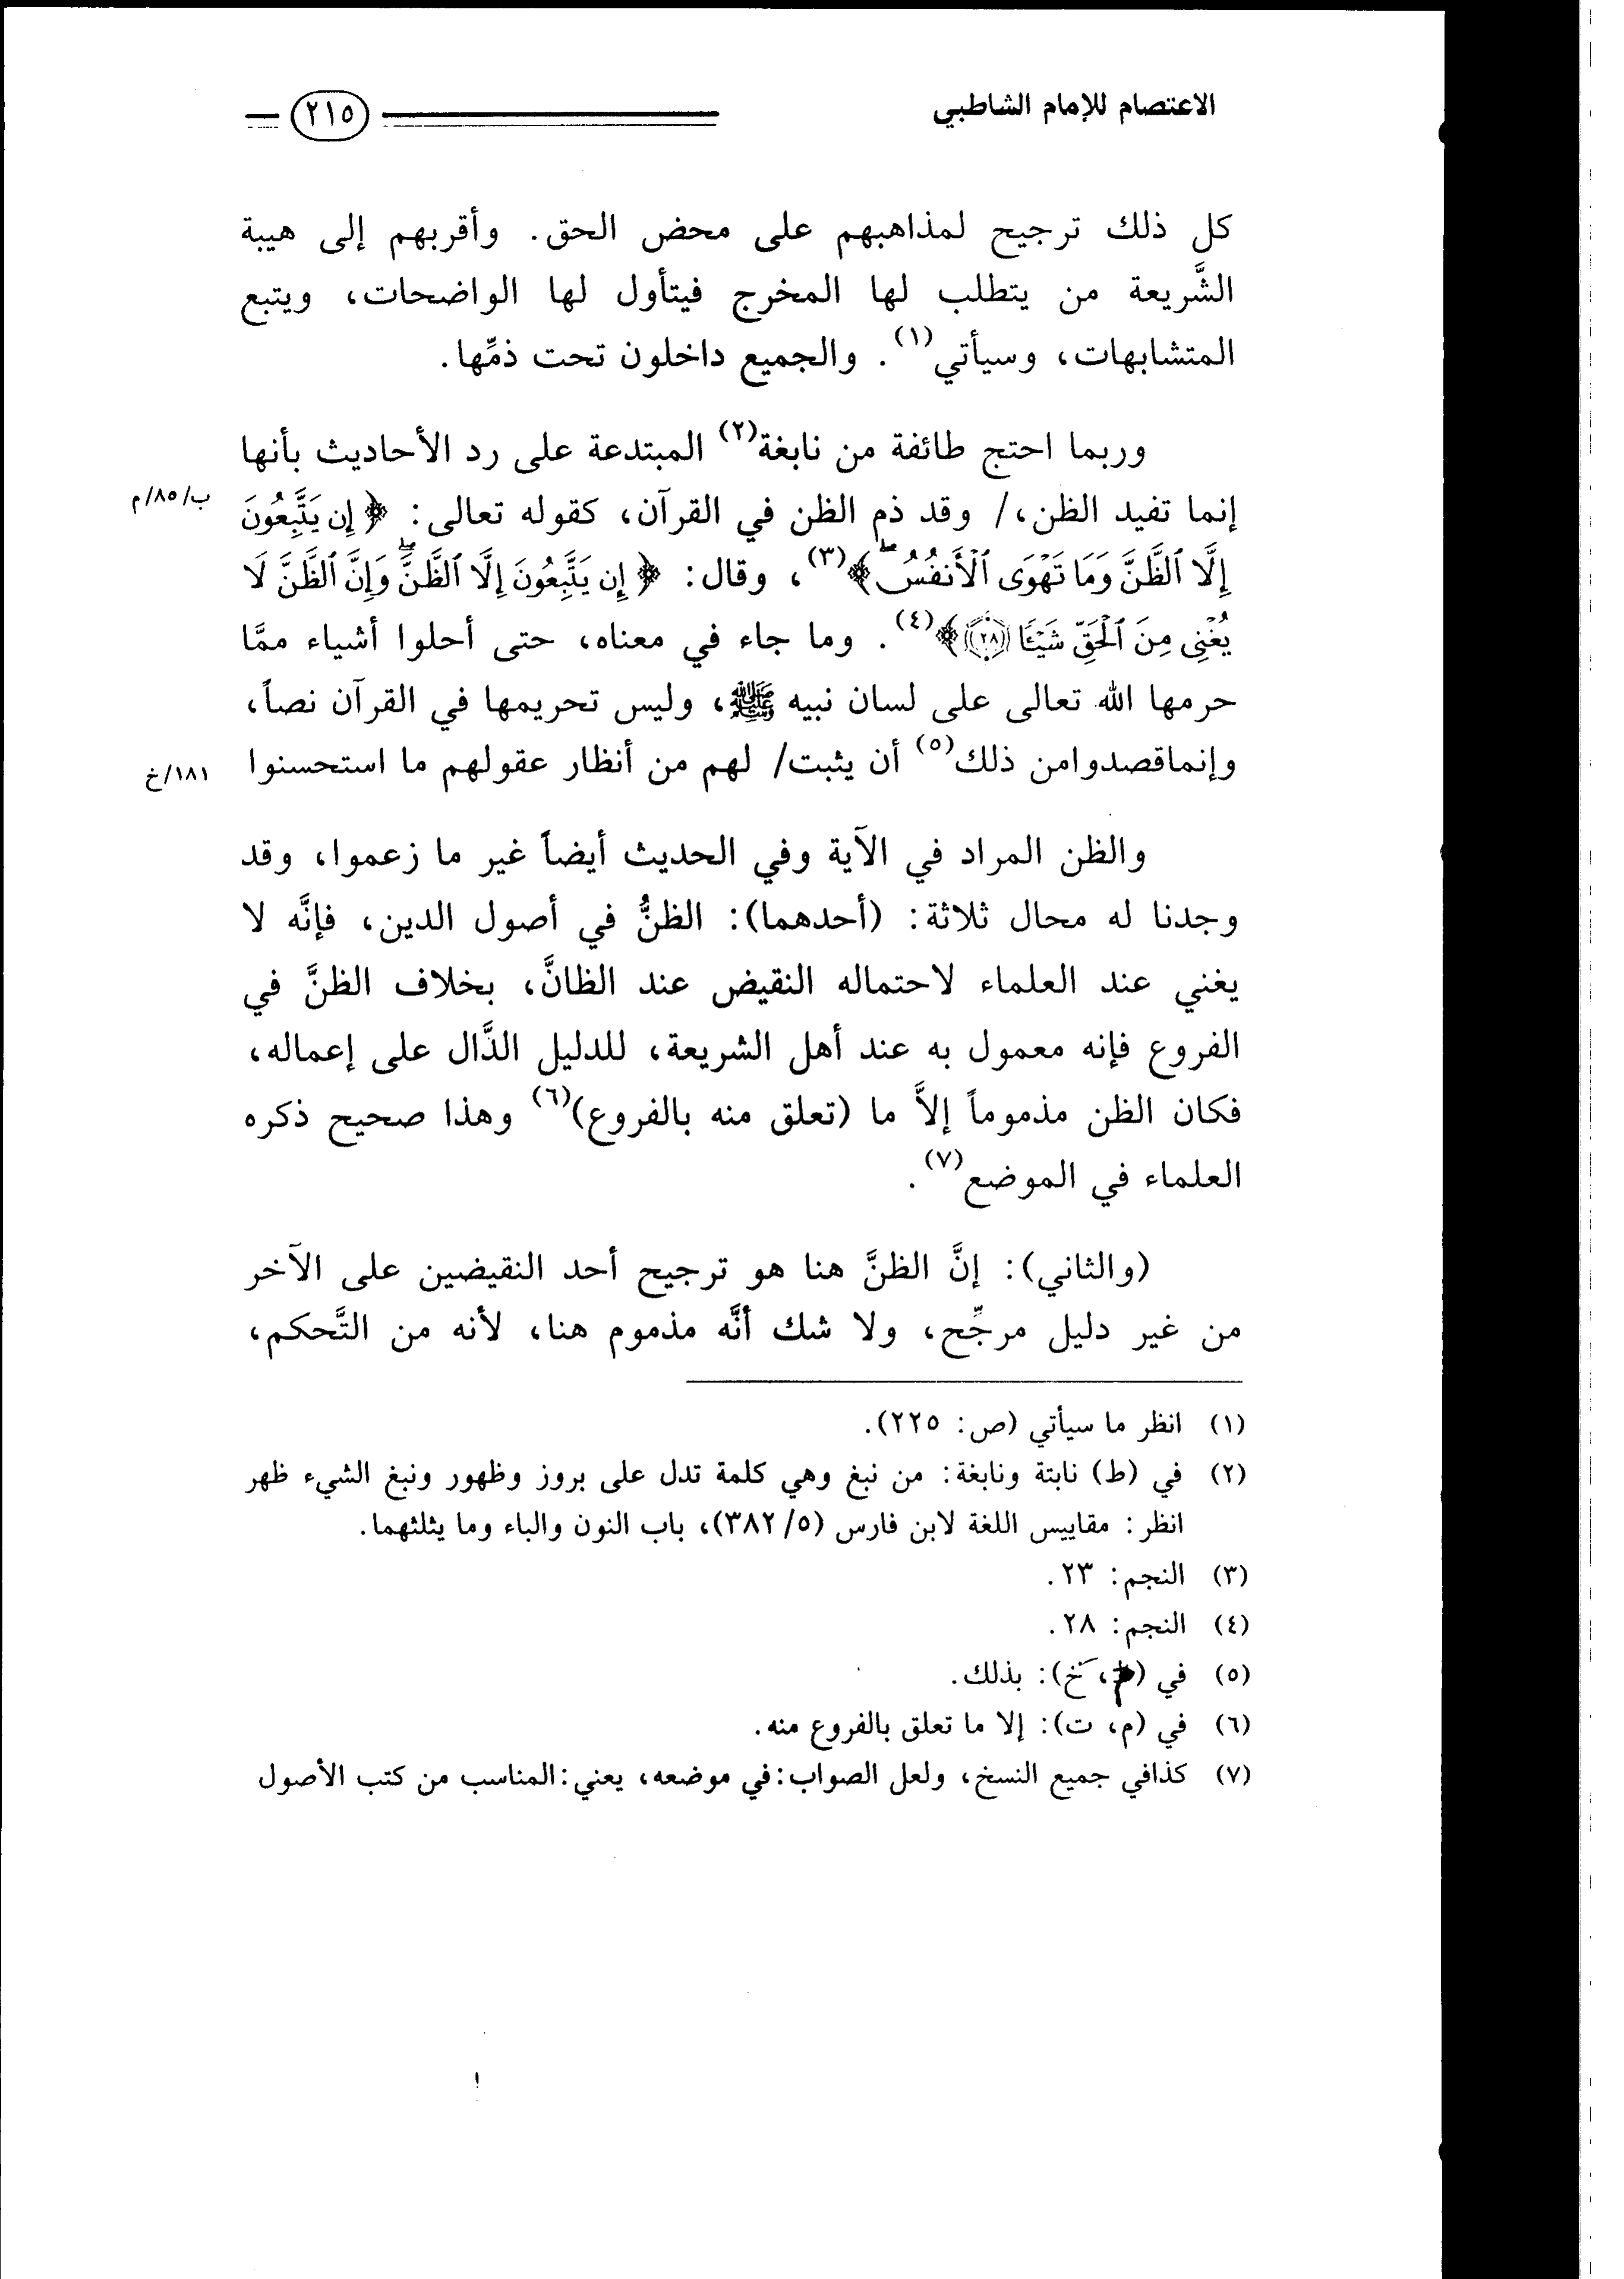 الاعتصام للإمام الشاطبي ٢١٥
كل ذلك ترجيح لمذاهبهم على محض الحق. وأقربهم إلى هيبة
الشَّريعة من يتطلب لها المخرج فيتأول لها الواضحات، ويتبع
المتشابهات، وسيأتي(١). والجميع داخلون تحت ذمِّها.
وربما احتج طائفة من نابغة(٢) المبتدعة على رد الأحاديث بأنها
إنما تفيد الظن،/ وقد ذم الظن في القرآن، كقوله تعالى: ﴿إِن يَتَّبِعُونَ
ب/٨٥/م
إِلَّا ٱلظَّنَّ وَمَا تَهْوَى ٱلْأَنفُسُ ۖ﴾(٣)، وقال: ﴿إِن يَتَّبِعُونَ إِلَّا ٱلظَّنَّ ۖ وَإِنَّ ٱلظَّنَّ لَا
يُغْنِى مِنَ ٱلْحَقِّ شَيْـًٔا ﴿٢٨﴾﴾(٤). وما جاء في معناه، حتى أحلوا أشياء ممَّا
حرمها الله تعالى على لسان نبيه ﷺ، وليس تحريمها في القرآن نصاً،
وإنماقصدوامن ذلك(٥) أن يثبت/ لهم من أنظار عقولهم ما استحسنوا
١٨١/خ
والظن المراد في الآية وفي الحديث أيضاً غير ما زعموا، وقد
وجدنا له محال ثلاثة: (أحدهما): الظنُّ في أصول الدين، فإنَّه لا
يغني عند العلماء لاحتماله النقيض عند الظانَّ، بخلاف الظنَّ في
الفروع فإنه معمول به عند أهل الشريعة، للدليل الدَّال على إعماله،
فكان الظن مذموماً إلاَّ ما (تعلق منه بالفروع)(٦) وهذا صحيح ذكره
العلماء في الموضع(٧).
(والثاني): إنَّ الظنَّ هنا هو ترجيح أحد النقيضين على الآخر
من غير دليل مرجِّح، ولا شك أنَّه مذموم هنا، لأنه من التَّحكم،
(١) انظر ما سيأتي (ص: ٢٢٥).
(٢) في (ط) نابتة ونابغة: من نبغ وهي كلمة تدل على بروز وظهور ونبغ الشيء ظهر
انظر: مقاييس اللغة لابن فارس (٥/ ٣٨٢)، باب النون والباء وما يثلثهما.
(٣) النجم: ٢٣.
(٤) النجم: ٢٨.
(٥) في (، خ): بذلك.
(٦) في (م، ت): إلا ما تعلق بالفروع منه.
(٧) كذافي جميع النسخ، ولعل الصواب:في موضعه، يعني:المناسب من كتب الأصول